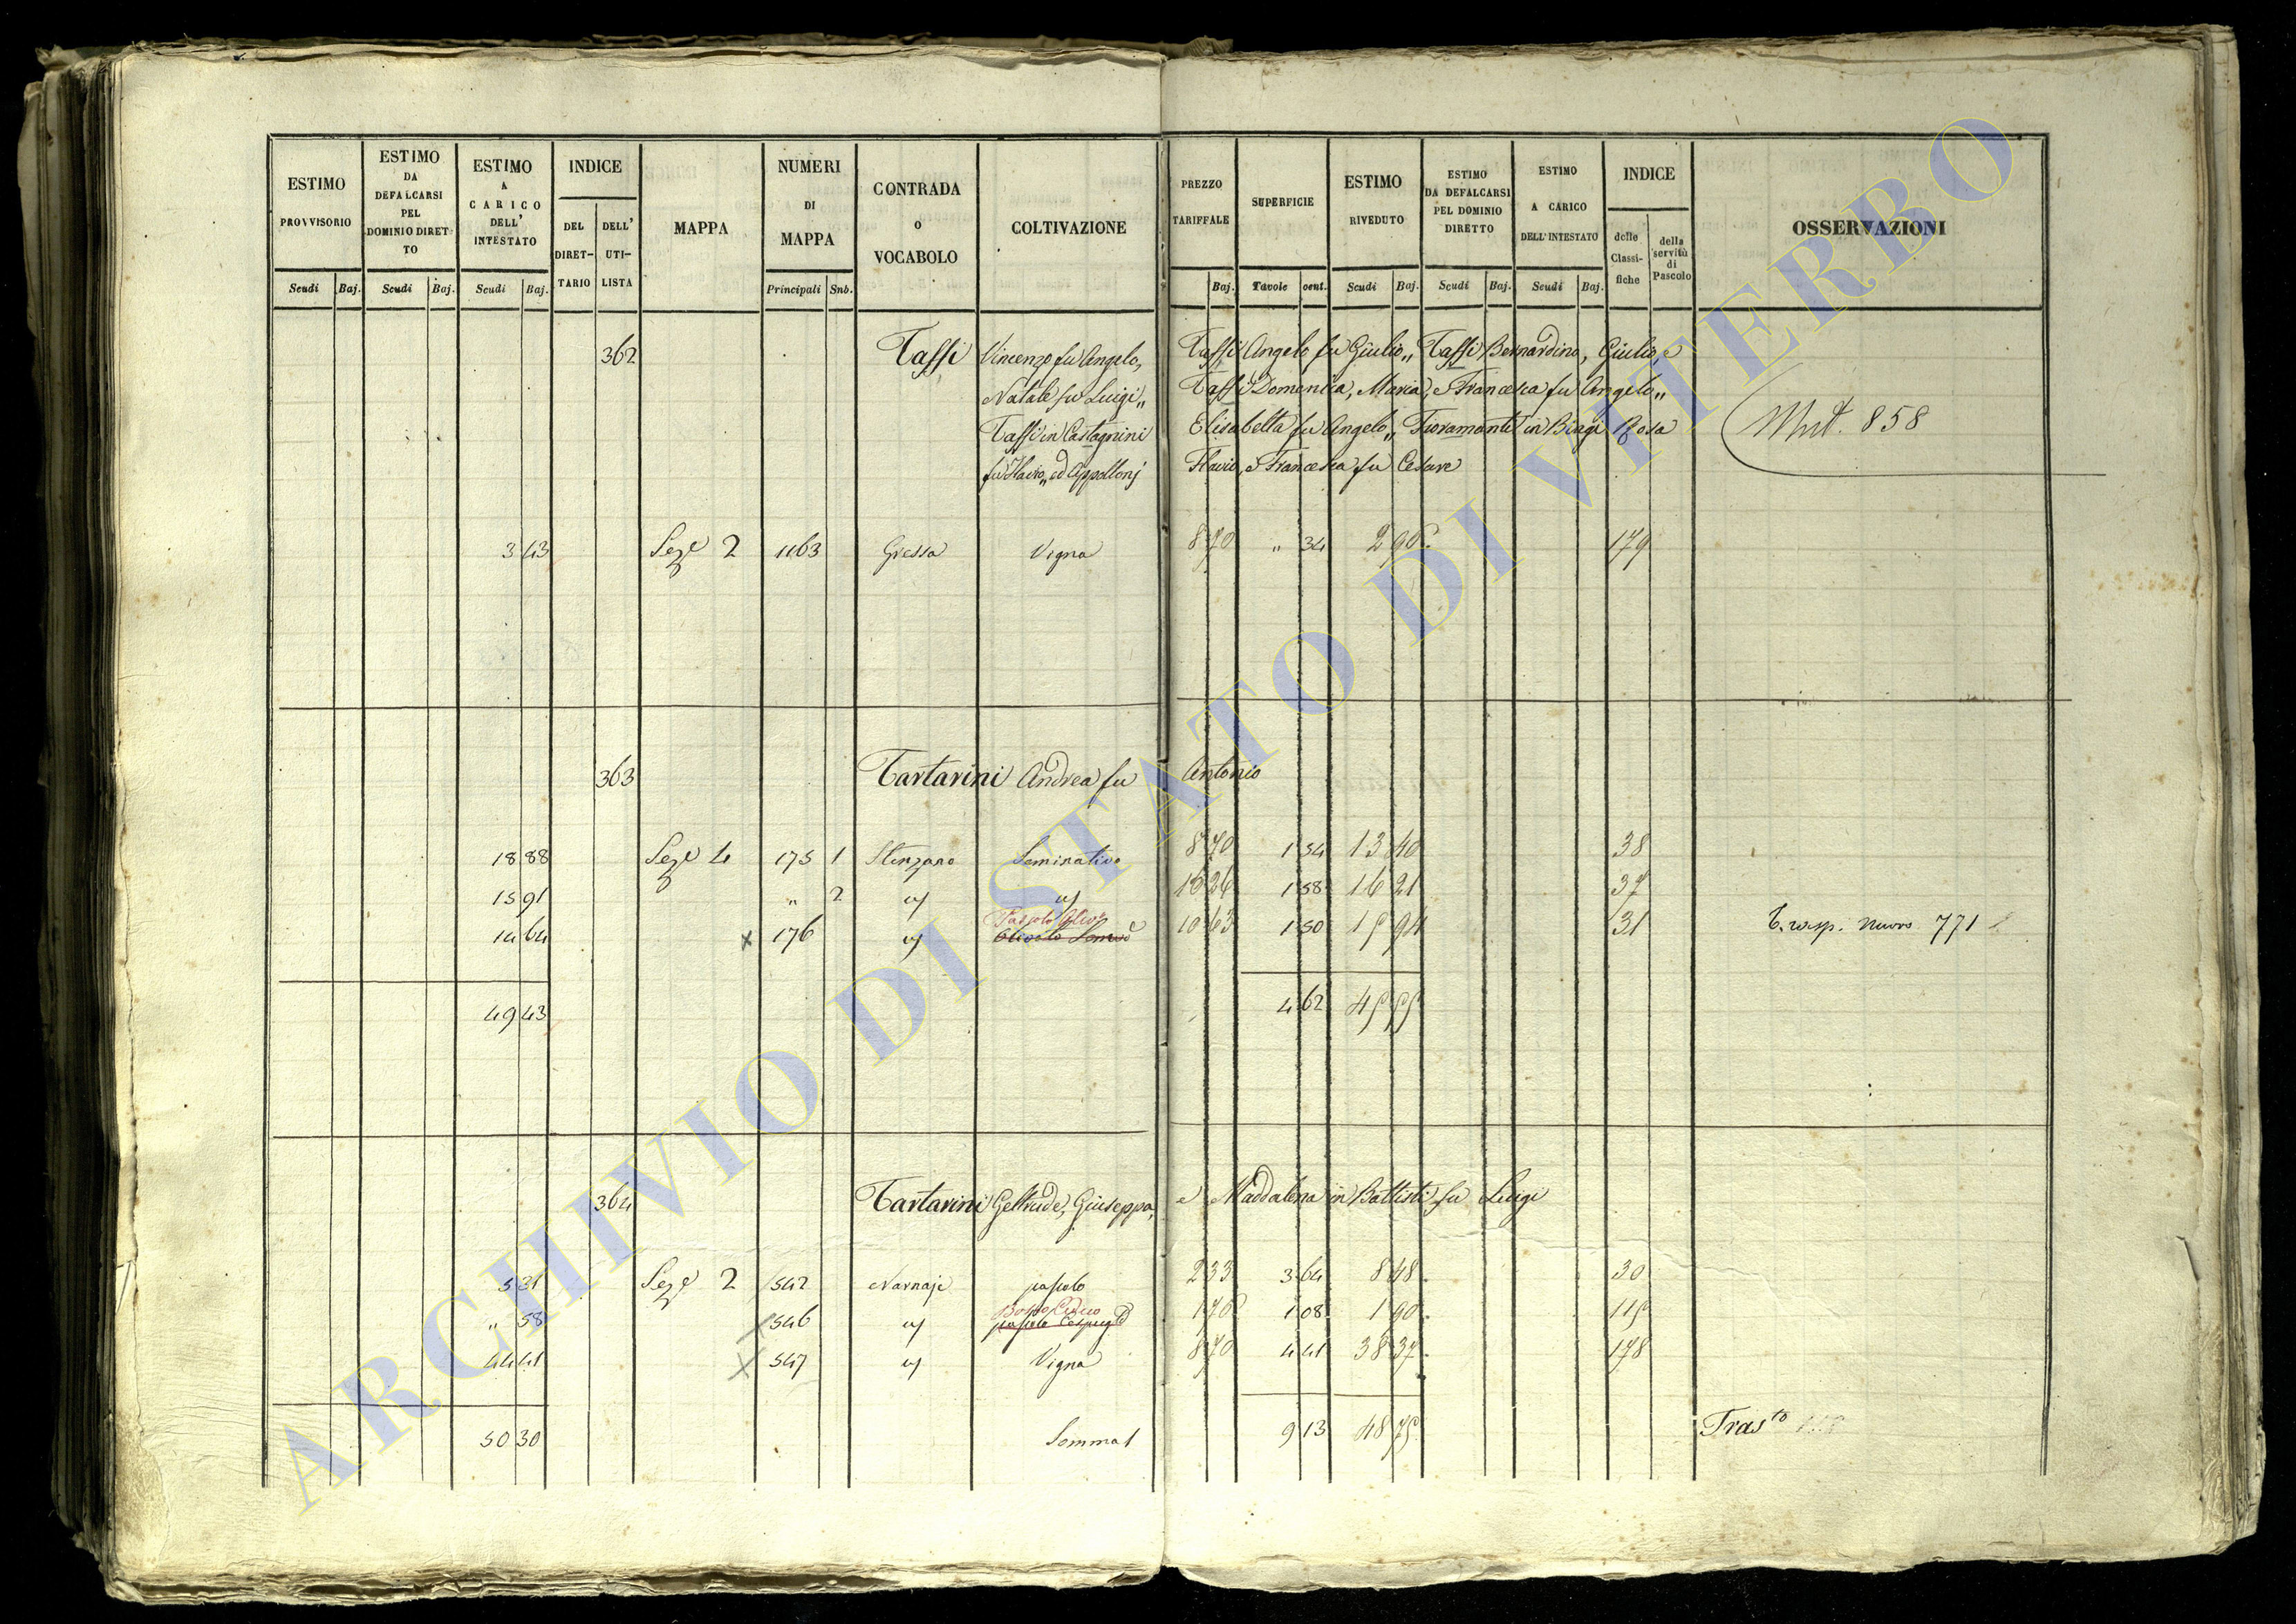 ESTIMO PROVVISORIO Scudi Baj.
ESTIMO DA DEFALCARSI PEL DOMINIO DIRETTO Scudi Baj.
ESTIMO A CARICO DELL' INTESTATO Scudi Baj.
INDICE DEL DIRETTARIO DELL' UTILISTA
MAPPA
NUMERI DI MAPPA Principali Snb.
CONTRADA o VOCABOLO
COLTIVAZIONE
PREZZO TARIFFALE Baj.
SUPERFICIE Tavole cent.
ESTIMO RIVEDUTO Scudi Baj.
ESTIMO DA DEFALCARSI PEL DOMINIO DIRETTO Scudi Baj.
ESTIMO A CARICO DELL'INTESTATO Scudi Baj.
INDICE delle Classifiche della servitù di Pascolo
OSSERVAZIONI
362 Tassi Vincenzo fu Angelo, Tassi Angelo fu Giulio,, Tassi Bernardino, Giulio, e
Natale fu Luigi,, Tassi Domenica, Maria, e Francesca fu Angelo,,
Tassi in Castagnini Elisabetta fu Angelo,, Fioramonti in Biagi Rosa
fu Flavio,, ed Appolloni Flavio, e Francesca fu Cesare
Mut. 858
3 43 Seze 2 1163 Gressa Vigna 8 70 " 34 2 96 179
363 Tartarini Andrea fu Antonio
18 88 Seze 4 175 1 Stenzano Seminativo 8 70 1 54 13 40 38
15 91 " 2 10 26 1 58 16 21 37
14 64 x 176 Pascolo Oliv. Olivato 10 63 1 50 15 94 31 nuovo 771
49 43 4 62 45 55
364 Tartarini Geltrude, Giuseppa, e Maddalena in Battisti fu Luigi
5 31 Seze 2 542 Narnaje pascolo 2 33 3 64 8 48 30
" 58 x 546 Bosco Ceduo pascolo Cespug 1 76 1 08 1 90 115
44 41 x 547 Vigna 8 70 4 41 38 37 178
50 30 Somma 9 13 48 75 Trasto
ARCHIVIO DI STATO DI VITERBO